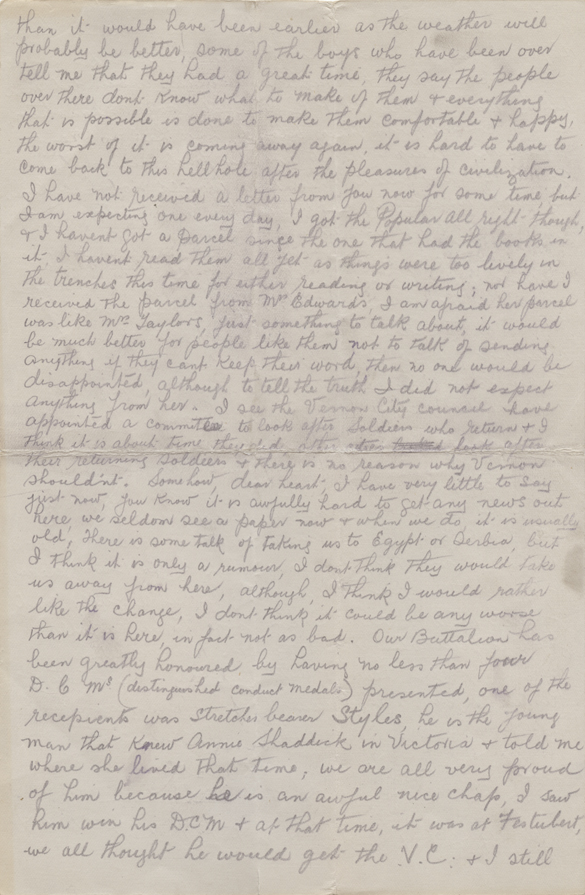 than it would have been earlier as the weather will
probably be better, some of the boys who have been over
tell me that they had a great time, they say the people
over there dont know what to make of them & everything
that is possible is done to make them comfortable & happy,
the worst of it is coming away again, it is hard to have to
come back to this hellhole after the pleasures of civilization.
I have not received a letter from you now for some time, but
I am expecting one every day, I got the Popular all right though,
& I havent got a parcel since the one that had the books in
it, I havent read them all yet as things were too lively in
the trenches this time for either reading or writing; nor have I
received the parcel from Mrs Edwards, I am afraid her parcel
was like Mrs Taylors, just something to talk about, it would
be much better for people like them not to talk of sending
anything if they cant keep their word, then no one would be
disappointed, although to tell the truth I did not expect
anything from her. I see the Vernon City council have
appointed a committee to look after Soldiers who return & I
think it is about time they did, other look after
their returning Soldiers & there is no reason why Vernon
shouldnt. Somehow, dear heart, I have very little to say
just now, you know it is awfully hard to get any news out
here, we seldom see a paper now & when we do, it is usually
old, There is some talk of taking us to Egypt or Serbia, but
I think it is only a rumour, I dont think they would take
us away from here, although, I think I would rather
like the change, I dont think it could be any worse
than it is here, in fact not as bad. Our Battalion has
been greatly honoured, by having no less than four
D.C Ms (distinguished conduct medals) presented, one of the
recepients was Stretcher bearer Styles, he is the young
man that knew Annie Shaddick in Victoria & told me
where she lived that time, we are all very proud
of him because he is an awful nice chap, I saw
him win his D.C M & at that time, it was at Festubert,
we all thought he would get the V.C. & I still